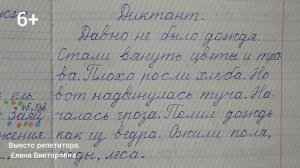 6+
Диктант.
Давно не было дождя.
Стали вянуть цветы и тра-
ва. Плохо росли хлеба. Но
ель. вот надвинулась туча. На-
Заяц чалась гроза. Полил дождь
жения. как из ведра. Ожили поля,
леса.
Вместо репетитора.
Елена Викторовна